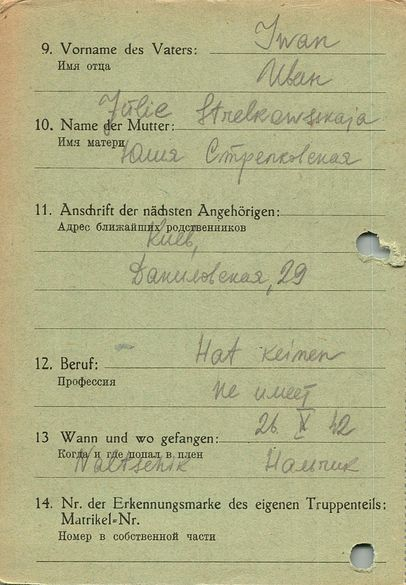 Iwan
9. Vorname des Vaters:
Имя отца
Иван
Julie Strelkowskaja
10. Name der Mutter:
Имя матери
Юлия Стрелковская
11. Anschrift der nächsten Angehörigen:
Адрес ближайших родственников
Kiew,
Даниловская, 29
Hat keinen
12. Beruf:
Профессия
не имеет
26. X 42
13 Wann und wo gefangen:
Когда и где попал в плен
Naltschik Нальчик
14. Nr. der Erkennungsmarke des eigenen Truppenteils:
Matrikel-Nr.
Номер в собственной части